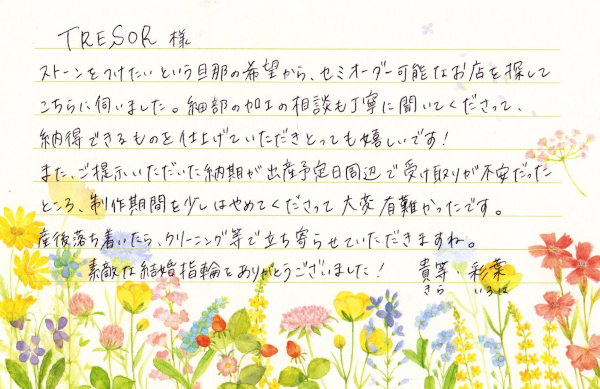 TRESOR 様
ストーンをつけたいという旦那の希望から、セミオーダー可能なお店を探して
こちらに伺いました。細部の加工の相談も丁寧に聞いてくださって、
納得できるものを仕上げていただきとっても嬉しいです!
また、ご提示いただいた納期が出産予定日周辺で受け取りが不安だった
ところ、制作期間を少しはやめてくださって大変有難かったです。
産後落ち着いたら、クリーニング等で立ち寄らせていただきますね。
素敵な結婚指輪をありがとうございました! 貴等・彩葉
きら いろは